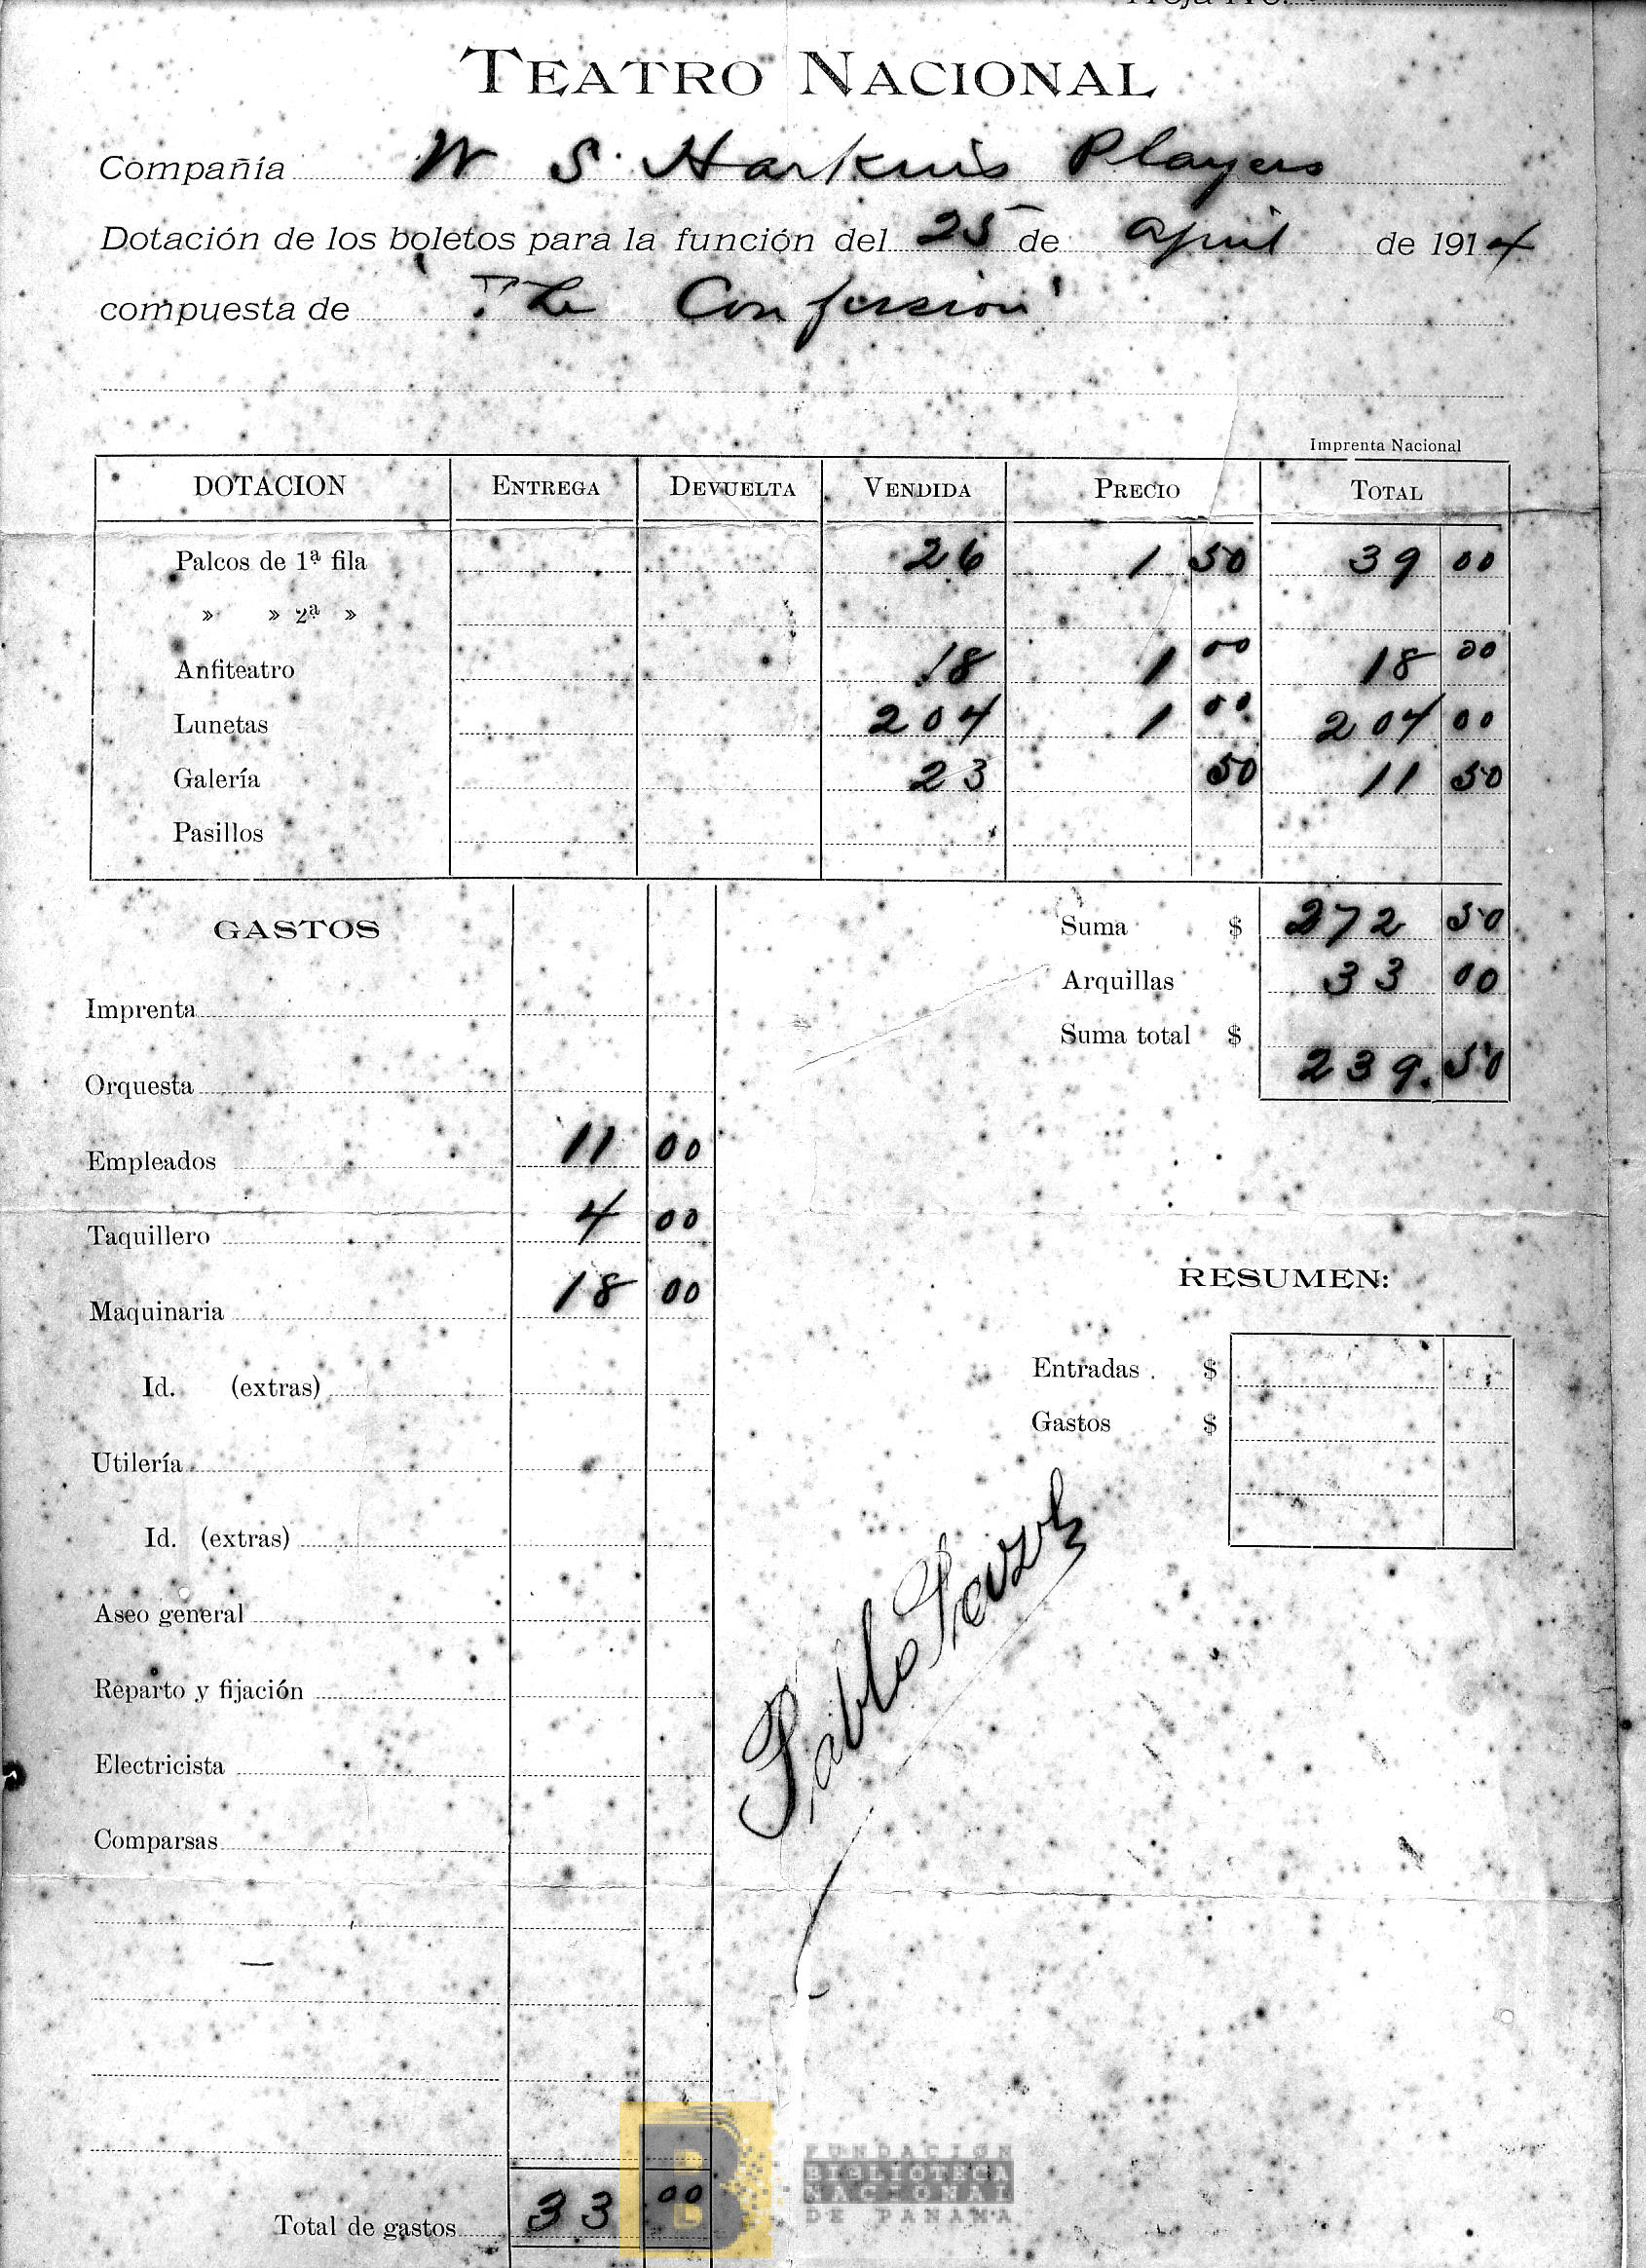 Hoja No.
TEATRO NACIONAL
Compañía W S. Harkins Players
Dotación de los boletos para la función del 25 de April de 1914
compuesta de "The Confession"
Imprenta Nacional
DOTACION ENTREGA DEVUELTA VENDIDA PRECIO TOTAL
Palcos de 1ª fila 26 1 50 39 00
» » 2ª »
Anfiteatro 18 1 00 18 00
Lunetas 204 1 00 204 00
Galería 23 50 11 50
Pasillos
GASTOS
Suma $ 272 50
Arquillas 33 00
Suma total $ 239.50
Imprenta
Orquesta
Empleados 11 00
Taquillero 4 00
Maquinaria 18 00
Id. (extras)
Utilería
Id. (extras)
Aseo general
Reparto y fijación
Electricista
Comparsas
RESUMEN:
Entradas $
Gastos $
Pablo
Total de gastos 33 00
B
FUNDACIÓN
BIBLIOTECA
NACIONAL
DE PANAMÁ